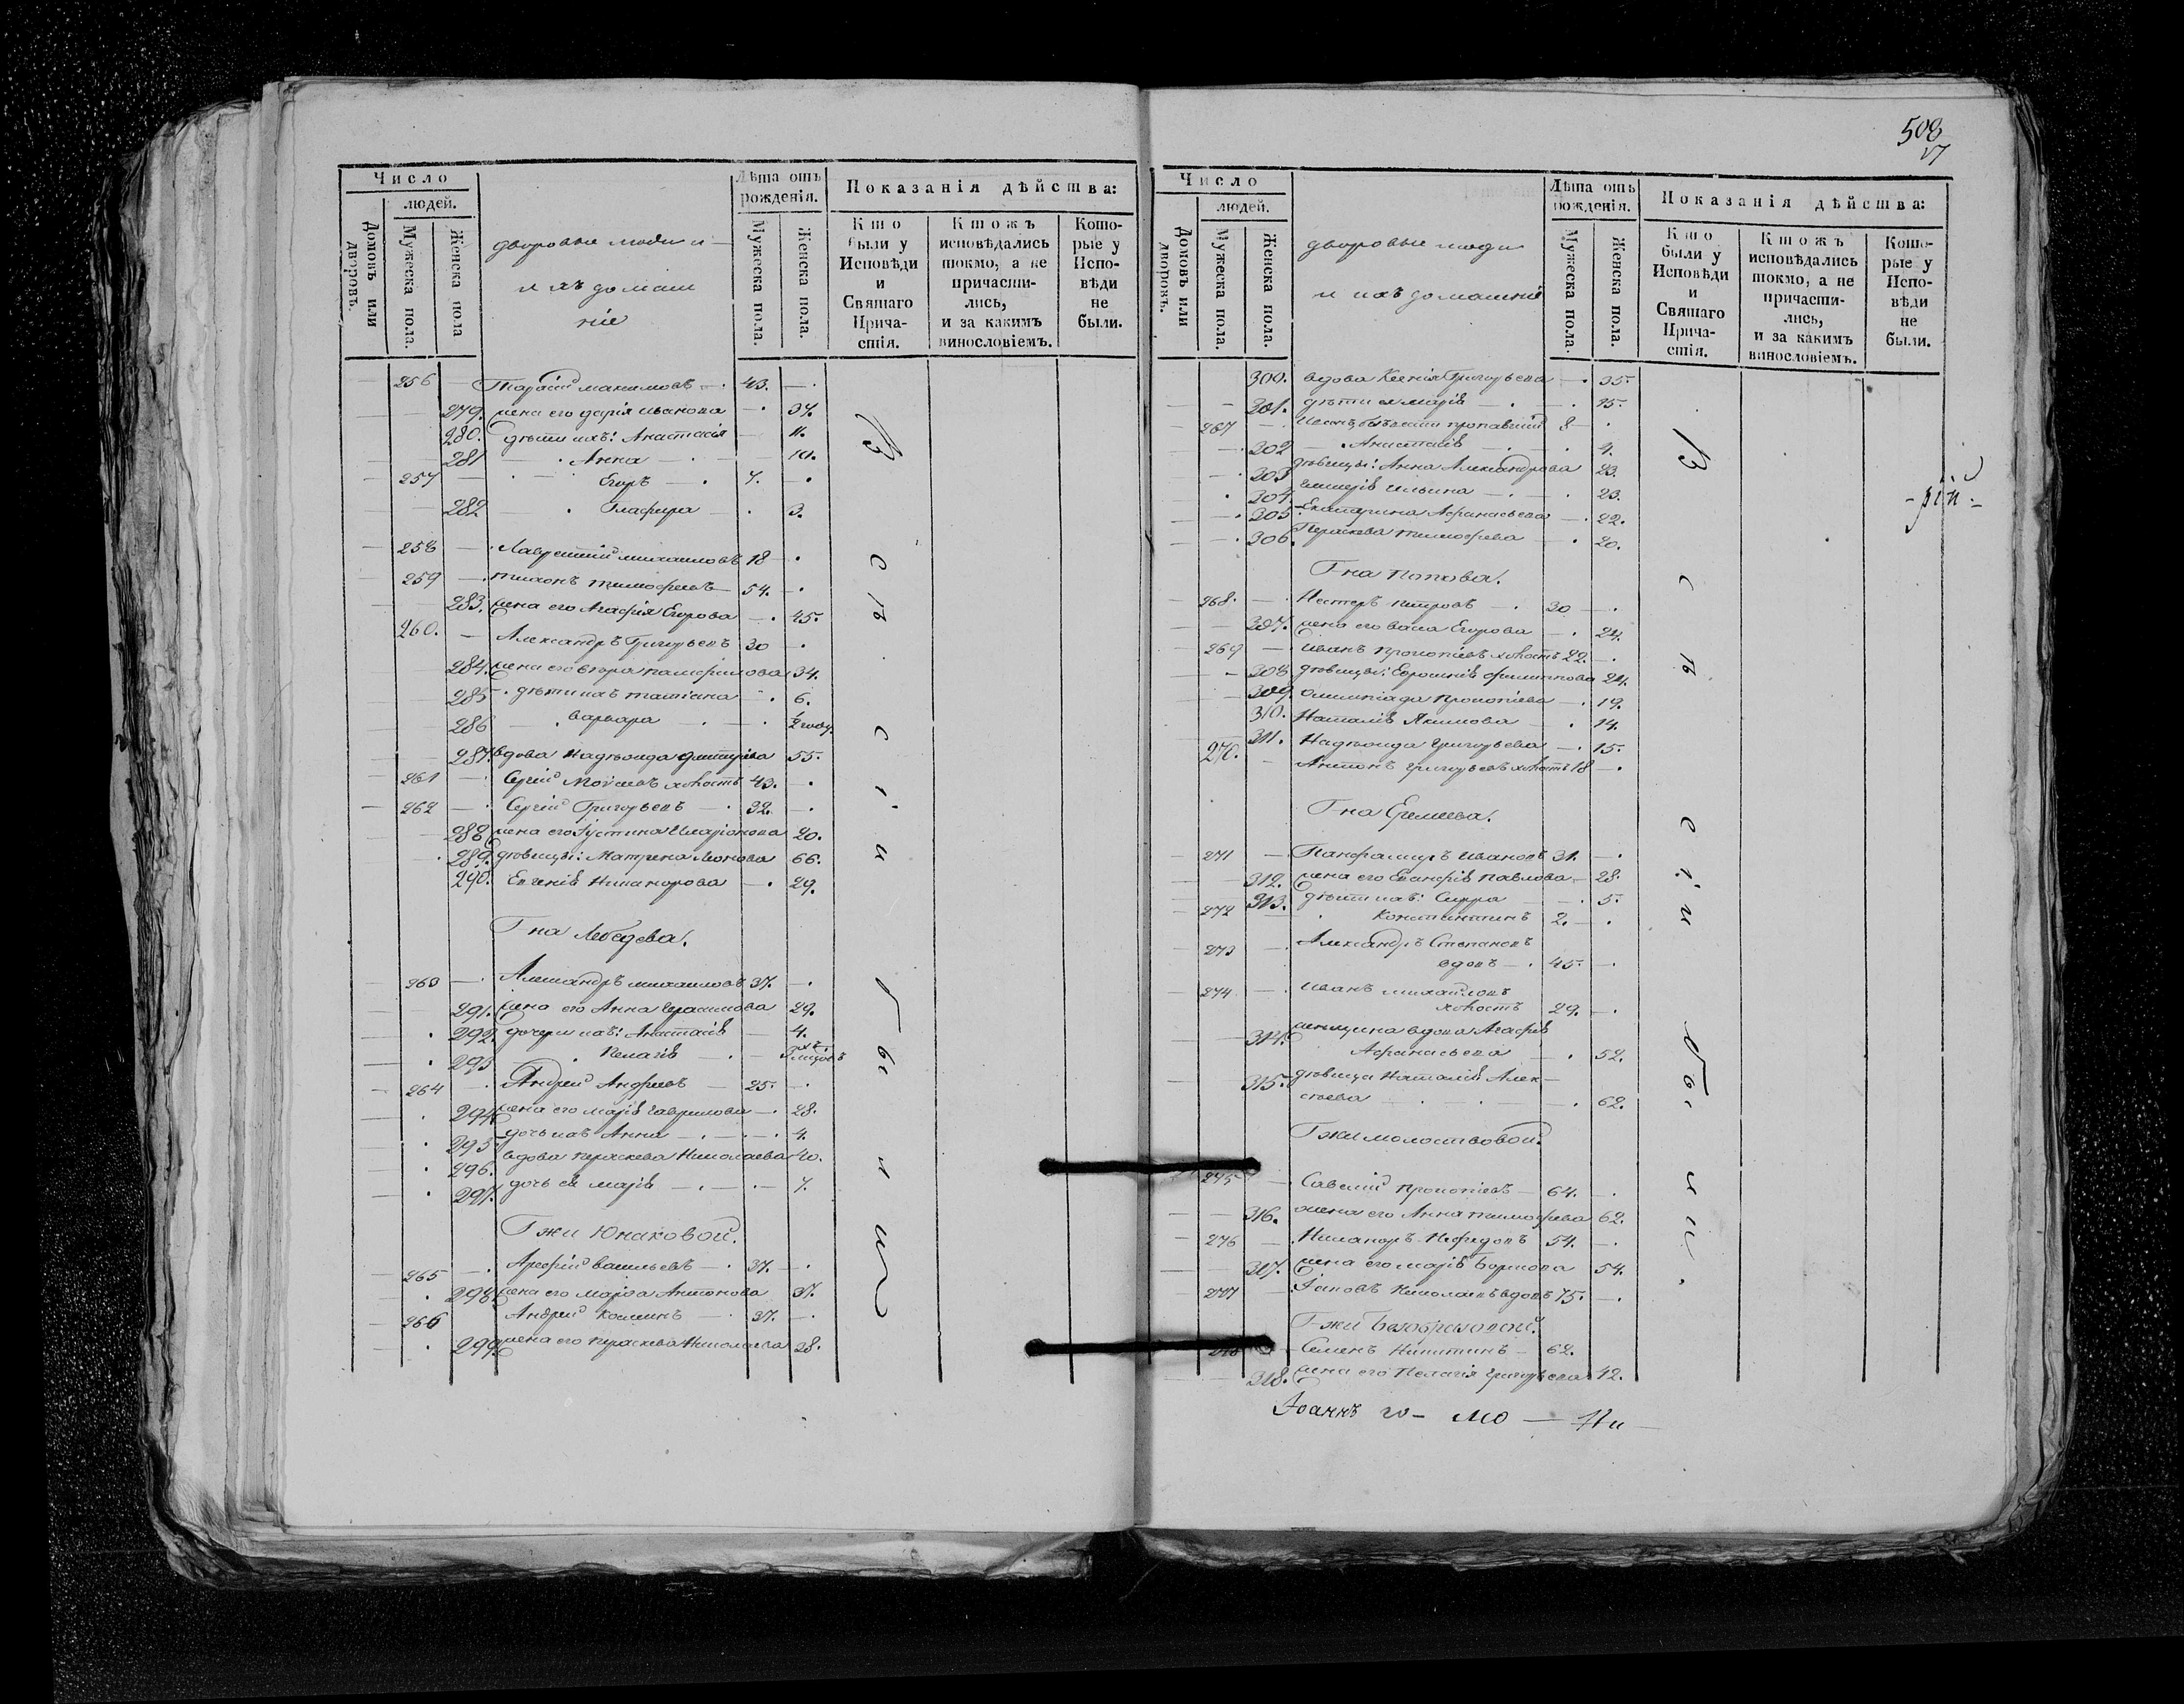 Число
людей.
Домовъ или дворовъ.
Мужеска пола.
Женска пола
дворовые люди и
и ихъ домаш
ніе
Лѣта отъ рожденія.
Мужеска пола.
Женска пола.
Показанія дѣйства:
Кто были у Исповѣди и Святаго Причастія.
Ктожъ исповѣдались токмо, а не причастились, и за какимъ винословіемъ.
Которые у Исповѣди не были.
256 — 43. —
279. жена его Дарія Иванова — 37.
280. дѣти ихъ: Анастасія — 11.
281 — Анна — 10.
257 — Егоръ — 7.
282 — Глафира — 3.
258 — Лаврентій Михаиловъ 18 —
259 — Тихонъ Тимофеевъ — 54. —
283. жена его Агафія Егорова — 45.
260. — Александръ Григорьевъ 30 —
284. жена его Памфилова 34.
285 дѣти ихъ Татіана — 6.
286 — Варвара — ½ году.
287. вдова Надѣжда Дмитріева 55.
261 — Сергій Моѵсеевъ холостъ 43. —
262 — Сергій Григорьевъ — 32. —
288 жена его Іустина Иларіонова 20.
289. дѣвицы: Матрена Леонова 66.
290. Евгенія Никанорова — 29.
Г-на Лебедева.
263 — Александръ Михаиловъ 37. —
291. жена его Анна Герасимова 29.
292. дочери ихъ: Анастасія — 4.
293 Пелагія —
264 — Андрей Андреевъ — 25. —
294. жена его Марія Гаврилова — 28.
295. дочь ихъ Анна — 4.
296. вдова Параскева Николаева 40.
297. дочь ея Марія — 7.
Г-жи Юнаковой.
265 — Арефій Васильевъ — 37. —
298. жена его Марѳа Антонова 37.
266 Андрей Козминъ — 37. —
299. жена его Параскева Николаева 28.
508
Число
людей.
Домовъ или дворовъ.
Мужеска пола.
Женска пола.
дворовые люди
и ихъ домашніе
Лѣта отъ рожденія.
Мужеска пола.
Женска пола.
Показанія дѣйства:
Кто были у Исповѣди и Святаго Причастія.
Ктожъ исповѣдались токмо, а не причастились, и за какимъ винословіемъ.
Которые у Исповѣди не были.
300. вдова Ксенія Григорьева — 35.
301. дѣти ея Марія — 15.
267 — Иванъ, безъ вѣсти пропавшій 8 —
302 — Анастасія — 4.
303 дѣвицы: Анна Александрова 23.
304. Гликерія Ильина — 23.
305 Екатерина Афанасьева — 22.
306. Параскева Тимофеева — 20.
Г-на Попова.
268. — Нестеръ Петровъ — 30 —
307. жена его Васса Егорова — 24.
269 — Иванъ Прокопіевъ холостъ 22. —
308 дѣвицы: Евросинія Филиппова 24.
309. Олимпіада Прокопіева — 19.
310. Наталія Якимова — 14.
311. Надѣжда Григорьева — 15.
270. — Антонъ Григорьевъ холостъ 18 —
Г-на Еремеева.
271 — Ивановъ 31. —
312. жена его Павлова — 28.
313. дѣти ихъ: — 5.
272 Константинъ 2. —
273 — Александръ Степановъ
вдовъ — 45. —
274 — Иванъ Михайловъ
холостъ 29. —
314. женщина вдова Агафія
Афанасьева — 52.
315. дѣвица Наталія Алек-
сѣева — 62.
Г-жи Молоствовой.
275 — Савелій Прокопіевъ — 64. —
316. жена его Анна Тимофеева 62.
276 — Никаноръ Нефедовъ 54. —
317. жена его Марія Борисова 54.
277 Іаковъ Николаевъ вдовъ 75. —
Г-жи Безобразовой.
278 Семенъ Никитинъ — 62.
318. жена его Пелагія Григорьева 42.
В с ѣ с і и б ы л и
В с ѣ с і и б ы л и.
-рій-
Іоаннъ го- мо — ни —